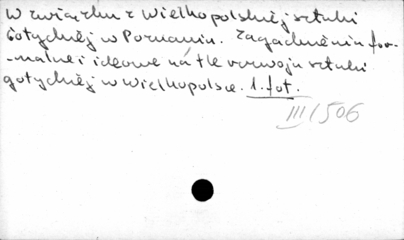 W związku z Wielkopolskiéj sztuki
Gotyckiéj w Poznaniu. Zagadnienia for-
-malne i ideowe na tle rozwoju sztuki
gotyckiéj w Wielkopolsce. 1. fot.
III/506